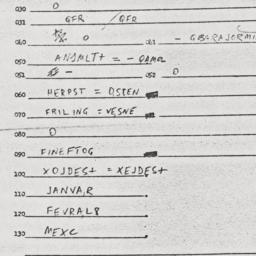 030 O
031 GFR / GFR
040 O 041 - GIBERAJORMI
050 ANSMLT+ = - OAMOR
051 - 052 O
060 HERPST = OSTEN
070 FRILING = VESNE
080 O
090 FINEFTOG
100 XOJDEST = XEJDEST
110 JANVAR
120 FEVRAL8
130 MEXC